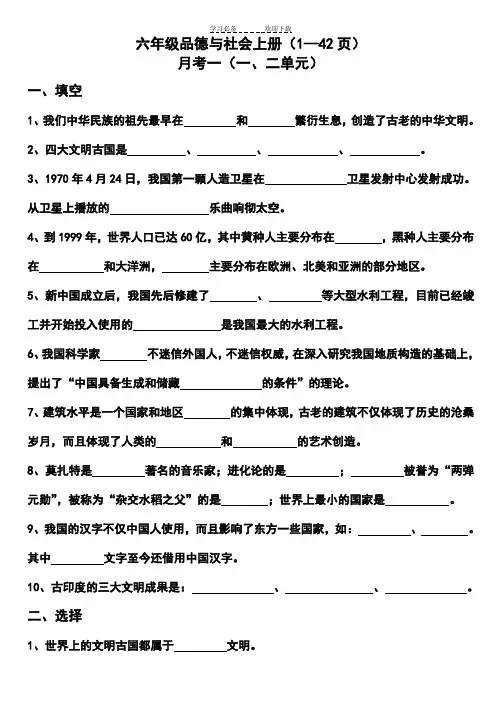 学习必备 欢迎下载
六年级品德与社会上册（1—42页）
月考一（一、二单元）
一、填空
1、我们中华民族的祖先最早在______和______繁衍生息，创造了古老的中华文明。
2、四大文明古国是______、______、______、______。
3、1970年4月24日，我国第一颗人造卫星在______卫星发射中心发射成功。
从卫星上播放的______乐曲响彻太空。
4、到1999年，世界人口已达60亿，其中黄种人主要分布在______，黑种人主要分布
在______和大洋洲，______主要分布在欧洲、北美和亚洲的部分地区。
5、新中国成立后，我国先后修建了______、______等大型水利工程，目前已经竣
工并开始投入使用的______是我国最大的水利工程。
6、我国科学家______不迷信外国人，不迷信权威，在深入研究我国地质构造的基础上，
提出了“中国具备生成和储藏______的条件”的理论。
7、建筑水平是一个国家和地区______的集中体现，古老的建筑不仅体现了历史的沧桑
岁月，而且体现了人类的______和______的艺术创造。
8、莫扎特是______著名的音乐家；进化论的是______；______被誉为“两弹
元勋”，被称为“杂交水稻之父”的是______；世界上最小的国家是______。
9、我国的汉字不仅中国人使用，而且影响了东方一些国家，如：______、______。
其中______文字至今还借用中国汉字。
10、古印度的三大文明成果是：______、______、______。
二、选择
1、世界上的文明古国都属于______文明。